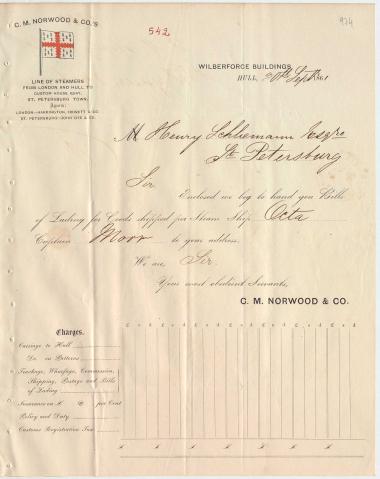 542
974
C. M. NORWOOD & CO.'S
LINE OF STEAMERS
FROM LONDON AND HULL TO
CUSTOM HOUSE QUAY,
ST. PETERSBURG TOWN.
Agents:
LONDON—HARRINGTON, HEWETT & CO.
ST. PETERSBURG—JOHN GYE & CO.
WILBERFORCE BUILDINGS,
HULL, 20th Septr
M Henry Schliemann Esqre
St Petersburg
Sir
Enclosed we beg to hand you Bills
of Lading for Goods shipped per Steam Ship Octa
Captain Moor to your address.
We are Sir
Your most obedient Servants,
C. M. NORWOOD & CO.
Charges.
£ s d £ s d £ s d £ s d £ s d £ s d
Carriage to Hull
Do. on Patterns
Trackage, Wharfage, Commission,
Shipping, Postage and Bills
of Lading
Insurance on £ @ per Cent
Policy and Duty
Customs Registration Fee
£ £ £ £ £ £